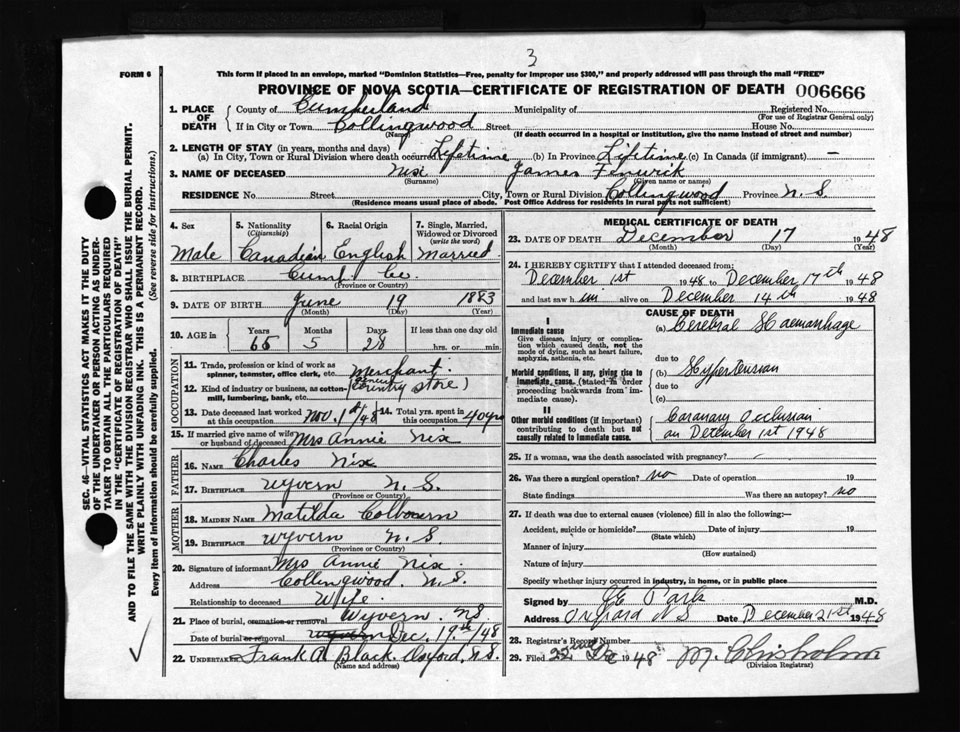 3
FORM 6
This form if placed in an envelope, marked "Dominion Statistics—Free, penalty for improper use $300," and properly addressed will pass through the mail "FREE"
PROVINCE OF NOVA SCOTIA—CERTIFICATE OF REGISTRATION OF DEATH 006666
1. PLACE OF DEATH County of Cumberland Municipality of Registered No.
(For use of Registrar General only)
If in City or Town Collingwood Street House No.
(Name) (If death occurred in a hospital or institution, give the name instead of street and number)
2. LENGTH OF STAY (in years, months and days)
(a) In City, Town or Rural Division where death occurred Lifetime (b) In Province Lifetime (c) In Canada (if immigrant) —
3. NAME OF DECEASED Nix James Fenwick
(Surname) (Given name or names)
RESIDENCE No. Street City, Town or Rural Division Collingwood Province N.S.
(Residence means usual place of abode. Post Office Address for residents in rural parts not sufficient)
SEC. 46—VITAL STATISTICS ACT MAKES IT THE DUTY
OF THE UNDERTAKER OR PERSON ACTING AS UNDER-
TAKER TO OBTAIN ALL THE PARTICULARS REQUIRED
IN THE "CERTIFICATE OF REGISTRATION OF DEATH"
AND TO FILE THE SAME WITH THE DIVISION REGISTRAR WHO SHALL ISSUE THE BURIAL PERMIT.
WRITE PLAINLY WITH UNFADING INK. THIS IS A PERMANENT RECORD.
Every item of information should be carefully supplied. (See reverse side for instructions.)
4. Sex 5. Nationality (Citizenship) 6. Racial Origin 7. Single, Married, Widowed or Divorced (write the word)
Male Canadian English Married
8. BIRTHPLACE Cumb. Co.
(Province or Country)
9. DATE OF BIRTH June 19 1883
(Month) (Day) (Year)
10. AGE in Years Months Days If less than one day old
65 5 28 hrs. or min.
OCCUPATION
11. Trade, profession or kind of work as spinner, teamster, office clerk, etc. Merchant
12. Kind of industry or business, as cotton-mill, lumbering, bank, etc. (General Country Store)
13. Date deceased last worked at this occupation Nov. 1st/48 14. Total yrs. spent in this occupation 40 yrs
15. If married give name of wife or husband of deceased Mrs Annie Nix
FATHER
16. NAME Charles Nix
17. BIRTHPLACE Wyvern N.S.
(Province or Country)
MOTHER
18. MAIDEN NAME Matilda Colbourn
19. BIRTHPLACE Wyvern N.S.
(Province or Country)
20. Signature of informant Mrs Annie Nix
Address Collingwood. N.S.
Relationship to deceased Wife.
21. Place of burial, cremation or removal Wyvern. N.S.
Date of burial or removal Wyvern Dec. 19th/48
22. UNDERTAKER Frank A. Black. Oxford, N.S.
(Name and address)
MEDICAL CERTIFICATE OF DEATH
23. DATE OF DEATH December 17 1948
(Month) (Day) (Year)
24. I HEREBY CERTIFY that I attended deceased from:
December 1st 1948 to December 17th 1948
and last saw him alive on December 14th 1948
CAUSE OF DEATH
I
Immediate cause (a) Cerebral Haemorrhage
Give disease, injury or complication which caused death, not the mode of dying, such as heart failure, asphyxia, asthenia, etc.
due to
Morbid conditions, if any, giving rise to immediate cause. (stated in order proceeding backwards from immediate cause). (b) Hypertension
due to
(c)
II
Other morbid conditions (if important) contributing to death but not causally related to immediate cause. Coronary Occlusion
on December 1st 1948
25. If a woman, was the death associated with pregnancy? -
26. Was there a surgical operation? no Date of operation 19
State findings Was there an autopsy? no
27. If death was due to external causes (violence) fill in also the following:—
Accident, suicide or homicide? Date of injury 19
(State which)
Manner of injury
(How sustained)
Nature of injury
Specify whether injury occurred in industry, in home, or in public place
Signed by M.D.
Address Oxford N.S Date December 21st 1948
28. Registrar's Record Number
29. Filed 22nd Dec 1948 M. Chisholm
(Division Registrar)